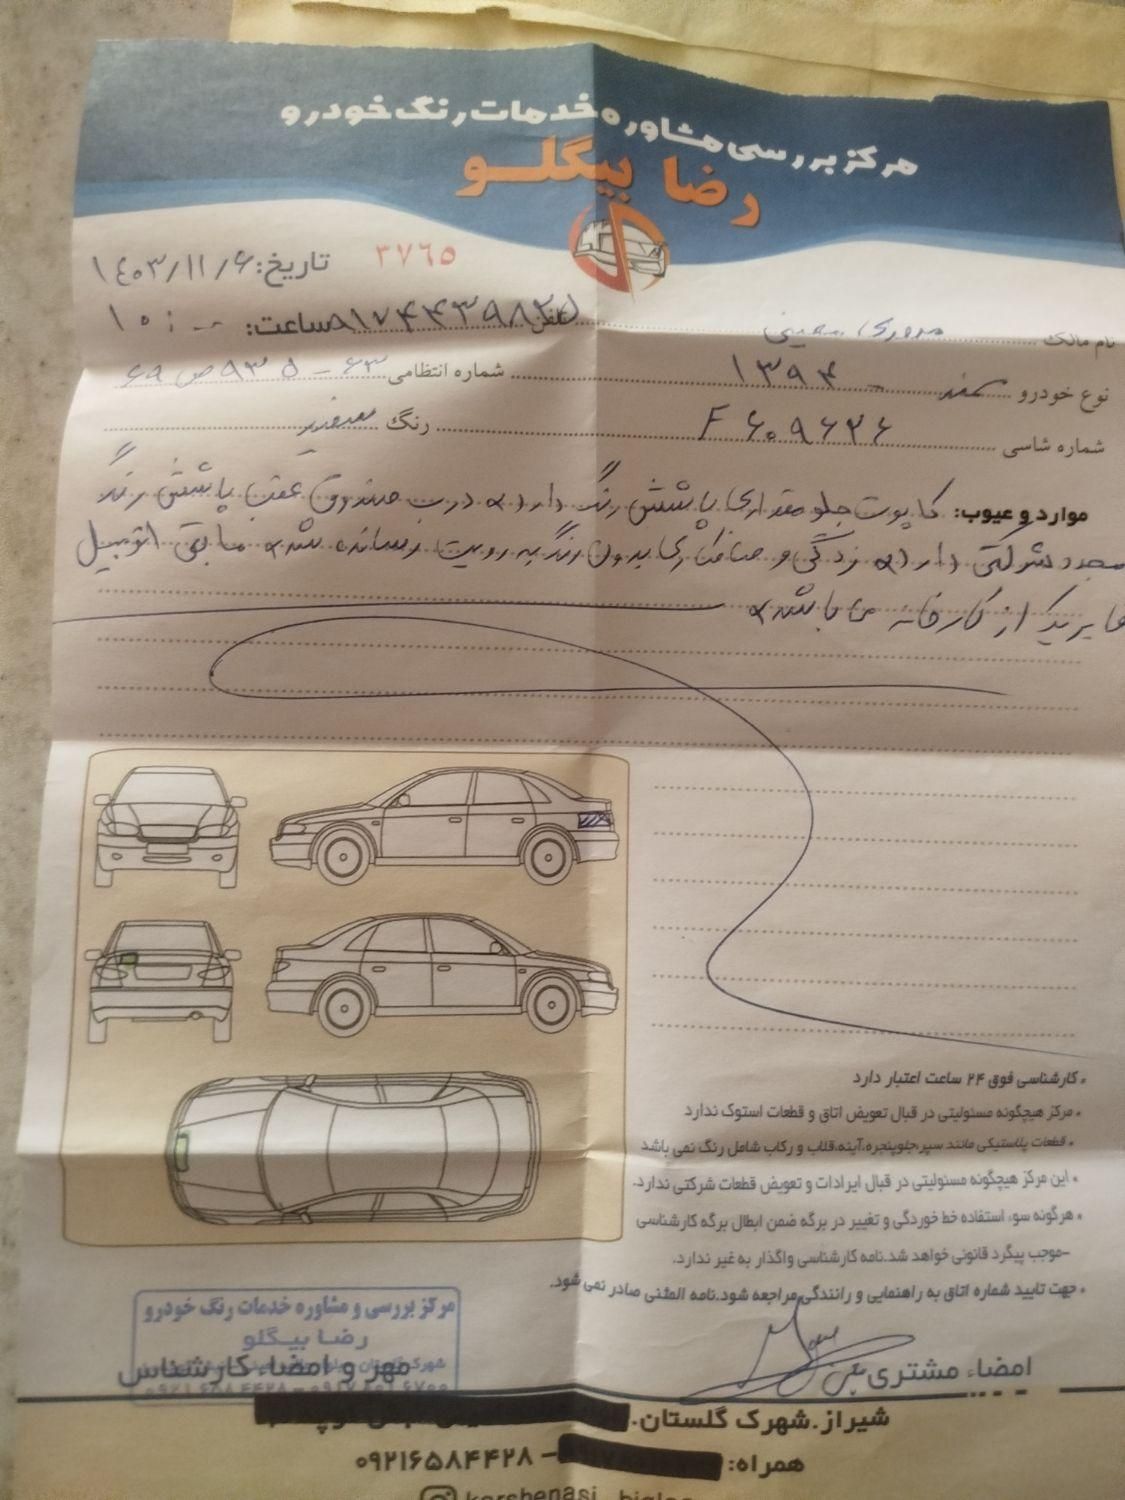 مرکز بررسی مشاوره خدمات رنگ خودرو
رضا بیگلو
۳۷۶۵
تاریخ: ۱۴۰۳/۱۱/۶
نام مالک معینی
ساعت: ۱۰:۰۰
نوع خودرو سمند - ۱۳۹۴
شماره انتظامی ۶۳ - ۹۳۵ ص ۶۹
شماره شاسی F ۶۰۹۶۲۶
رنگ سفید
موارد و عیوب: کاپوت جلو مقداری پاشش رنگ دارد، درب صندوق عقب پاشش رنگ
مجدد شرکتی دارد، زدگی و صافکاری بدون رنگ به رویت رسانده شد، مابقی اتومبیل
فابریک از کارخانه می باشد،
• کارشناسی فوق ۲۴ ساعت اعتبار دارد
• مرکز هیچگونه مسئولیتی در قبال تعویض اتاق و قطعات استوک ندارد
• قطعات پلاستیکی مانند سپر،جلوپنجره،آینه،قلاب و رکاب شامل رنگ نمی باشد
• این مرکز هیچگونه مسئولیتی در قبال ایرادات و تعویض قطعات شرکتی ندارد.
• هرگونه سوء استفاده خط خوردگی و تغییر در برگه ضمن ابطال برگه کارشناسی
-موجب پیگرد قانونی خواهد شد.نامه کارشناسی واگذار به غیر ندارد.
• جهت تایید شماره اتاق به راهنمایی و رانندگی مراجعه شود.نامه المثنی صادر نمی شود.
امضاء مشتری
مرکز بررسی و مشاوره خدمات رنگ خودرو
رضا بیگلو
مهر و امضاء کارشناس
شیراز.شهرک گلستان.
همراه: - ۰۹۲۱۶۵۸۴۴۲۸